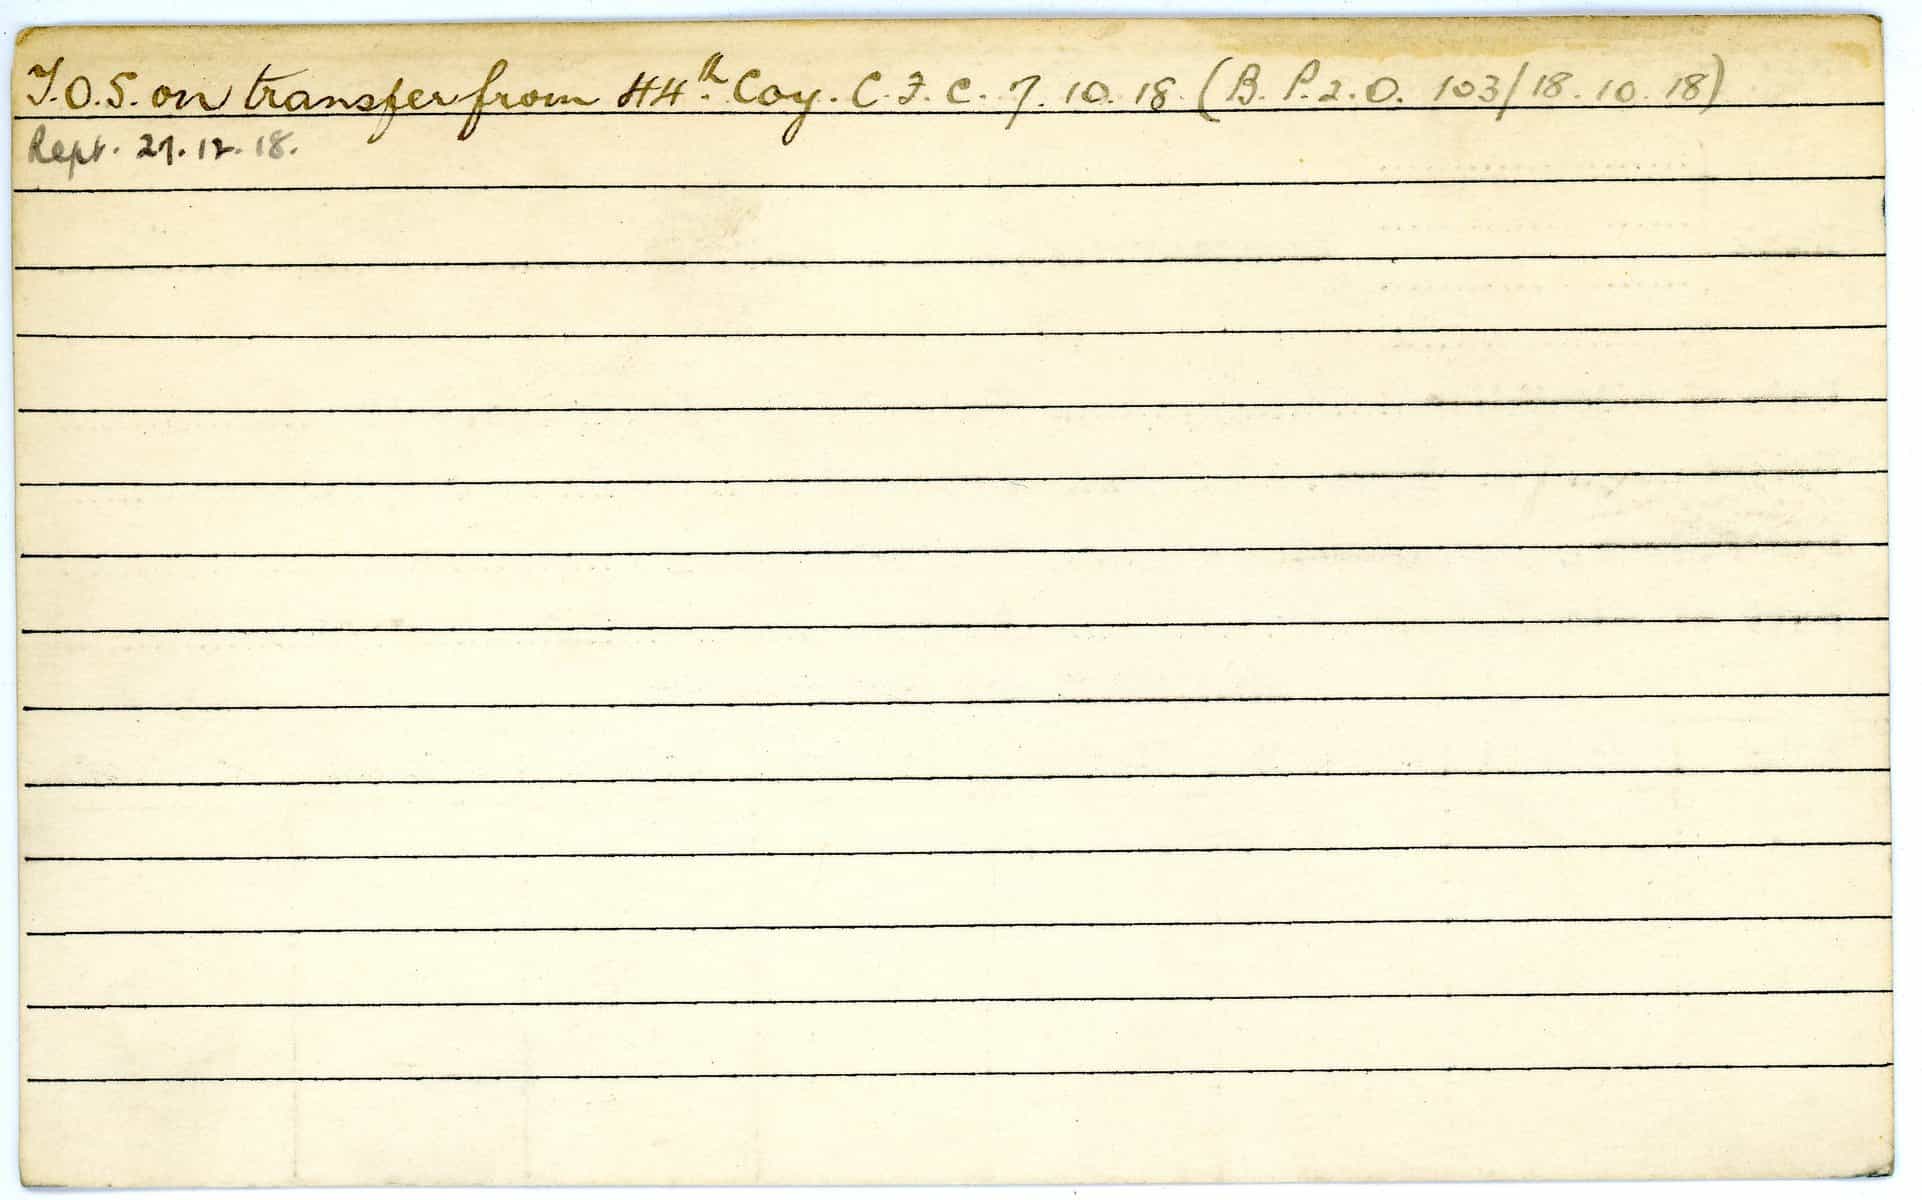 T.O.S. on transfer from 44th Coy. C.F.C. 7.10.18 (B.P.2.O. 103/18.10.18)
Rept. 27.12.18.